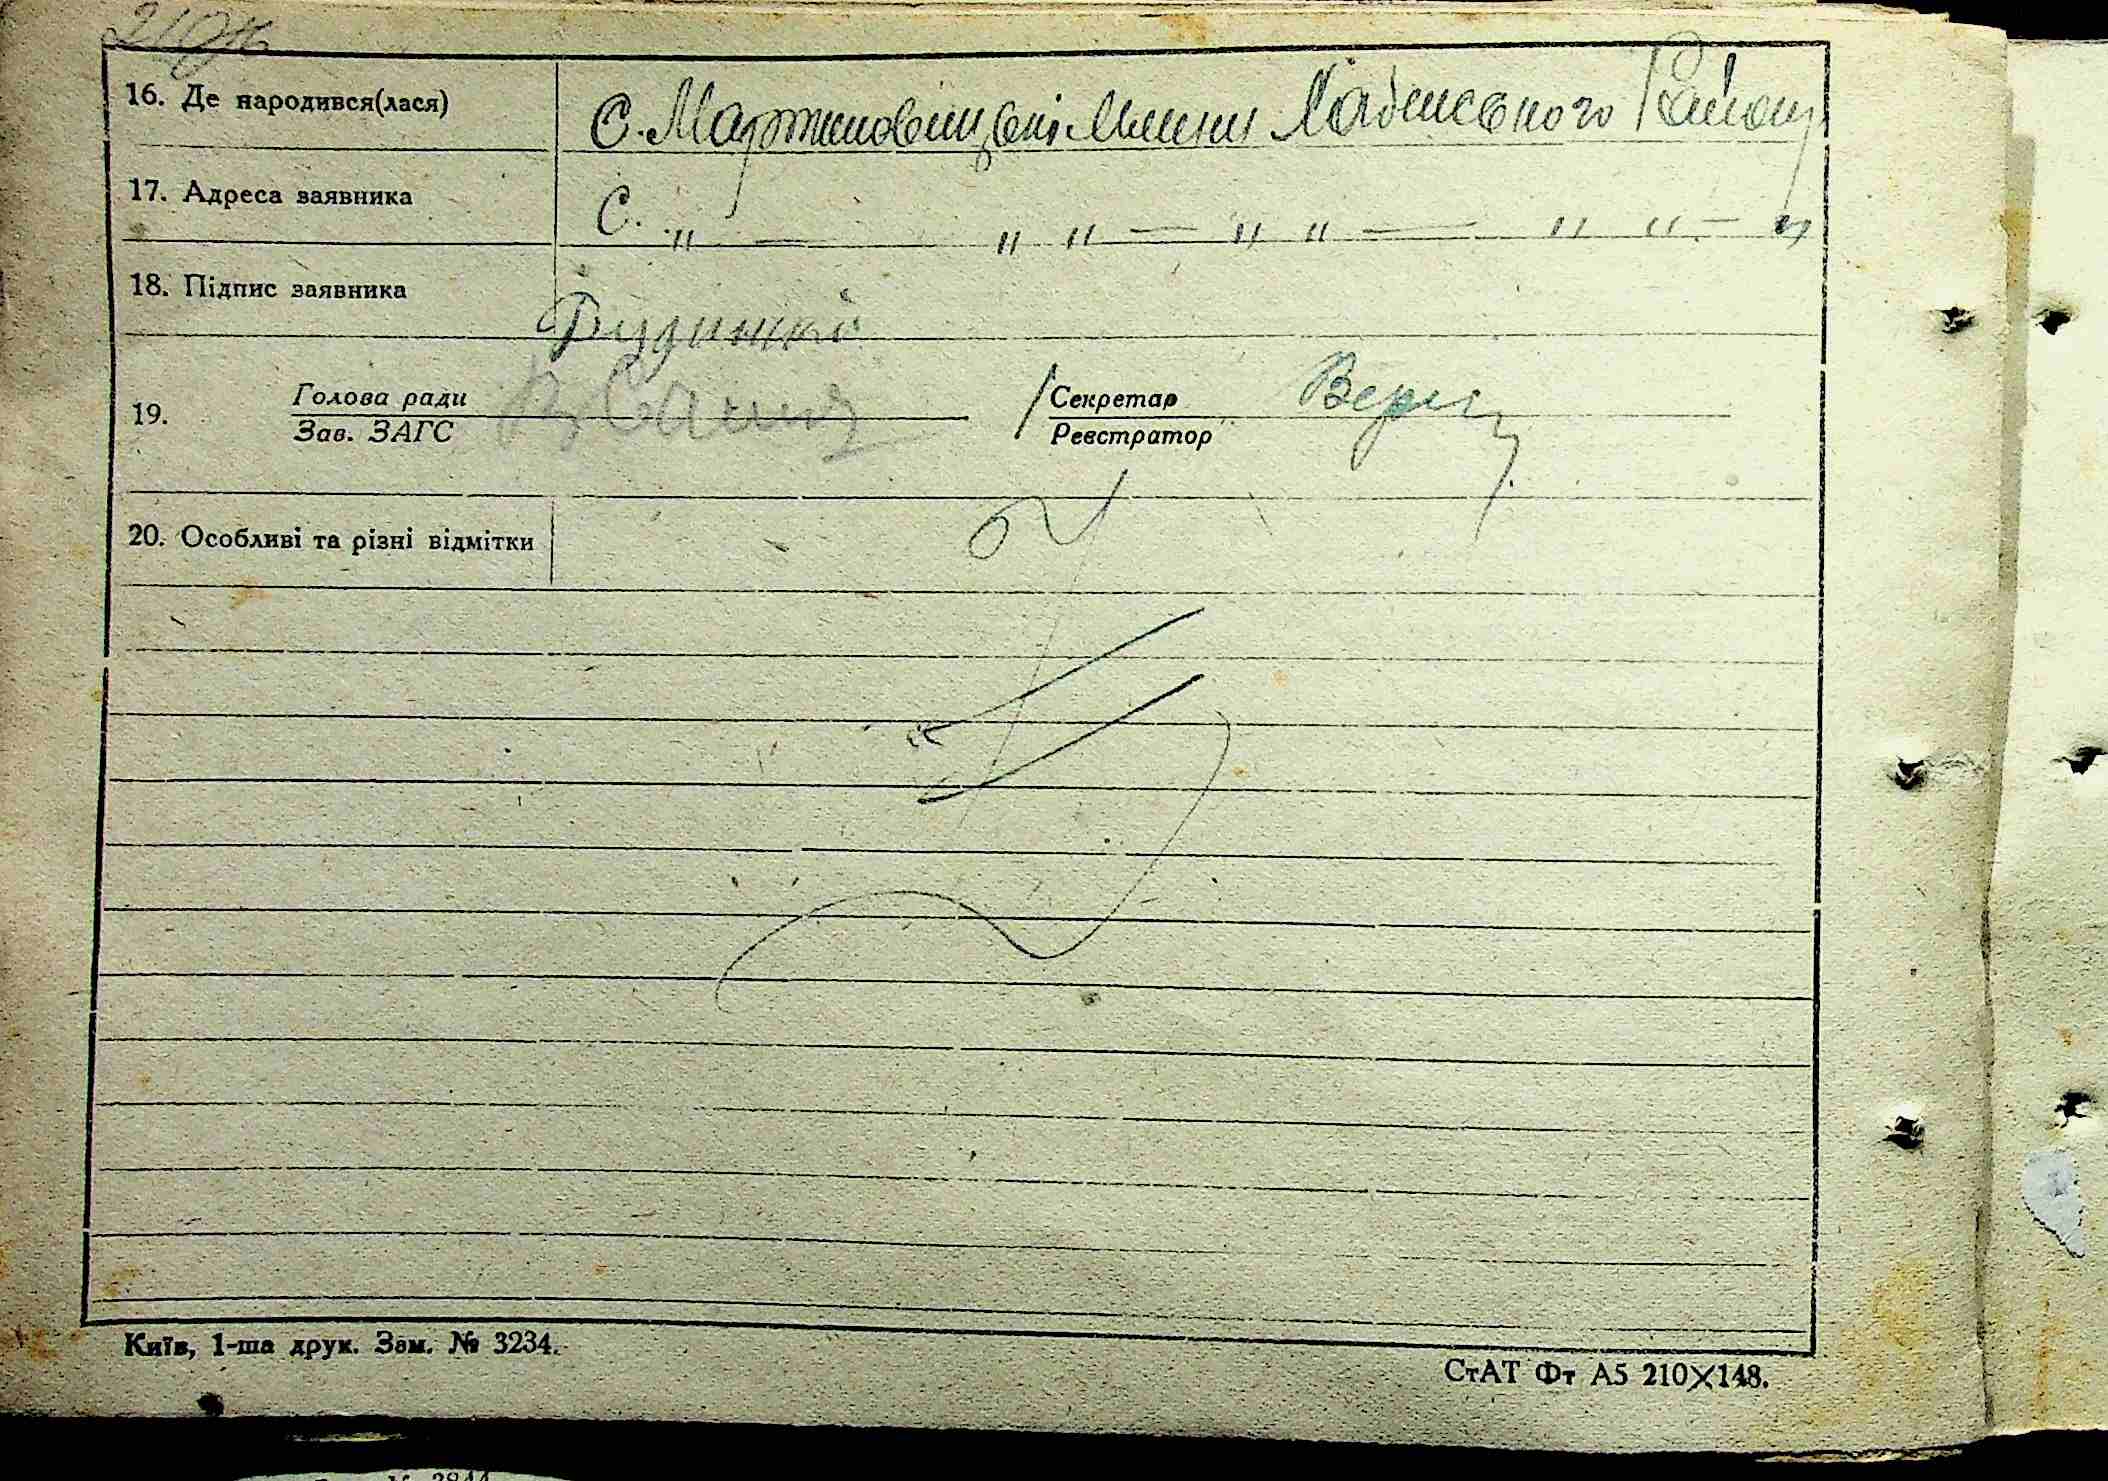 210
16. Де народився(лася) С. Мартиновицької Хабенського Району
17. Адреса заявника С. „ — „ „ — „ „ — „ „ — „
18. Підпис заявника
19. Голова ради Секретар
Зав. ЗАГС Реєстратор
20. Особливі та різні відмітки
Київ, 1-ша друк. Зам. № 3234.
СтАТ Фт А5 210×148.